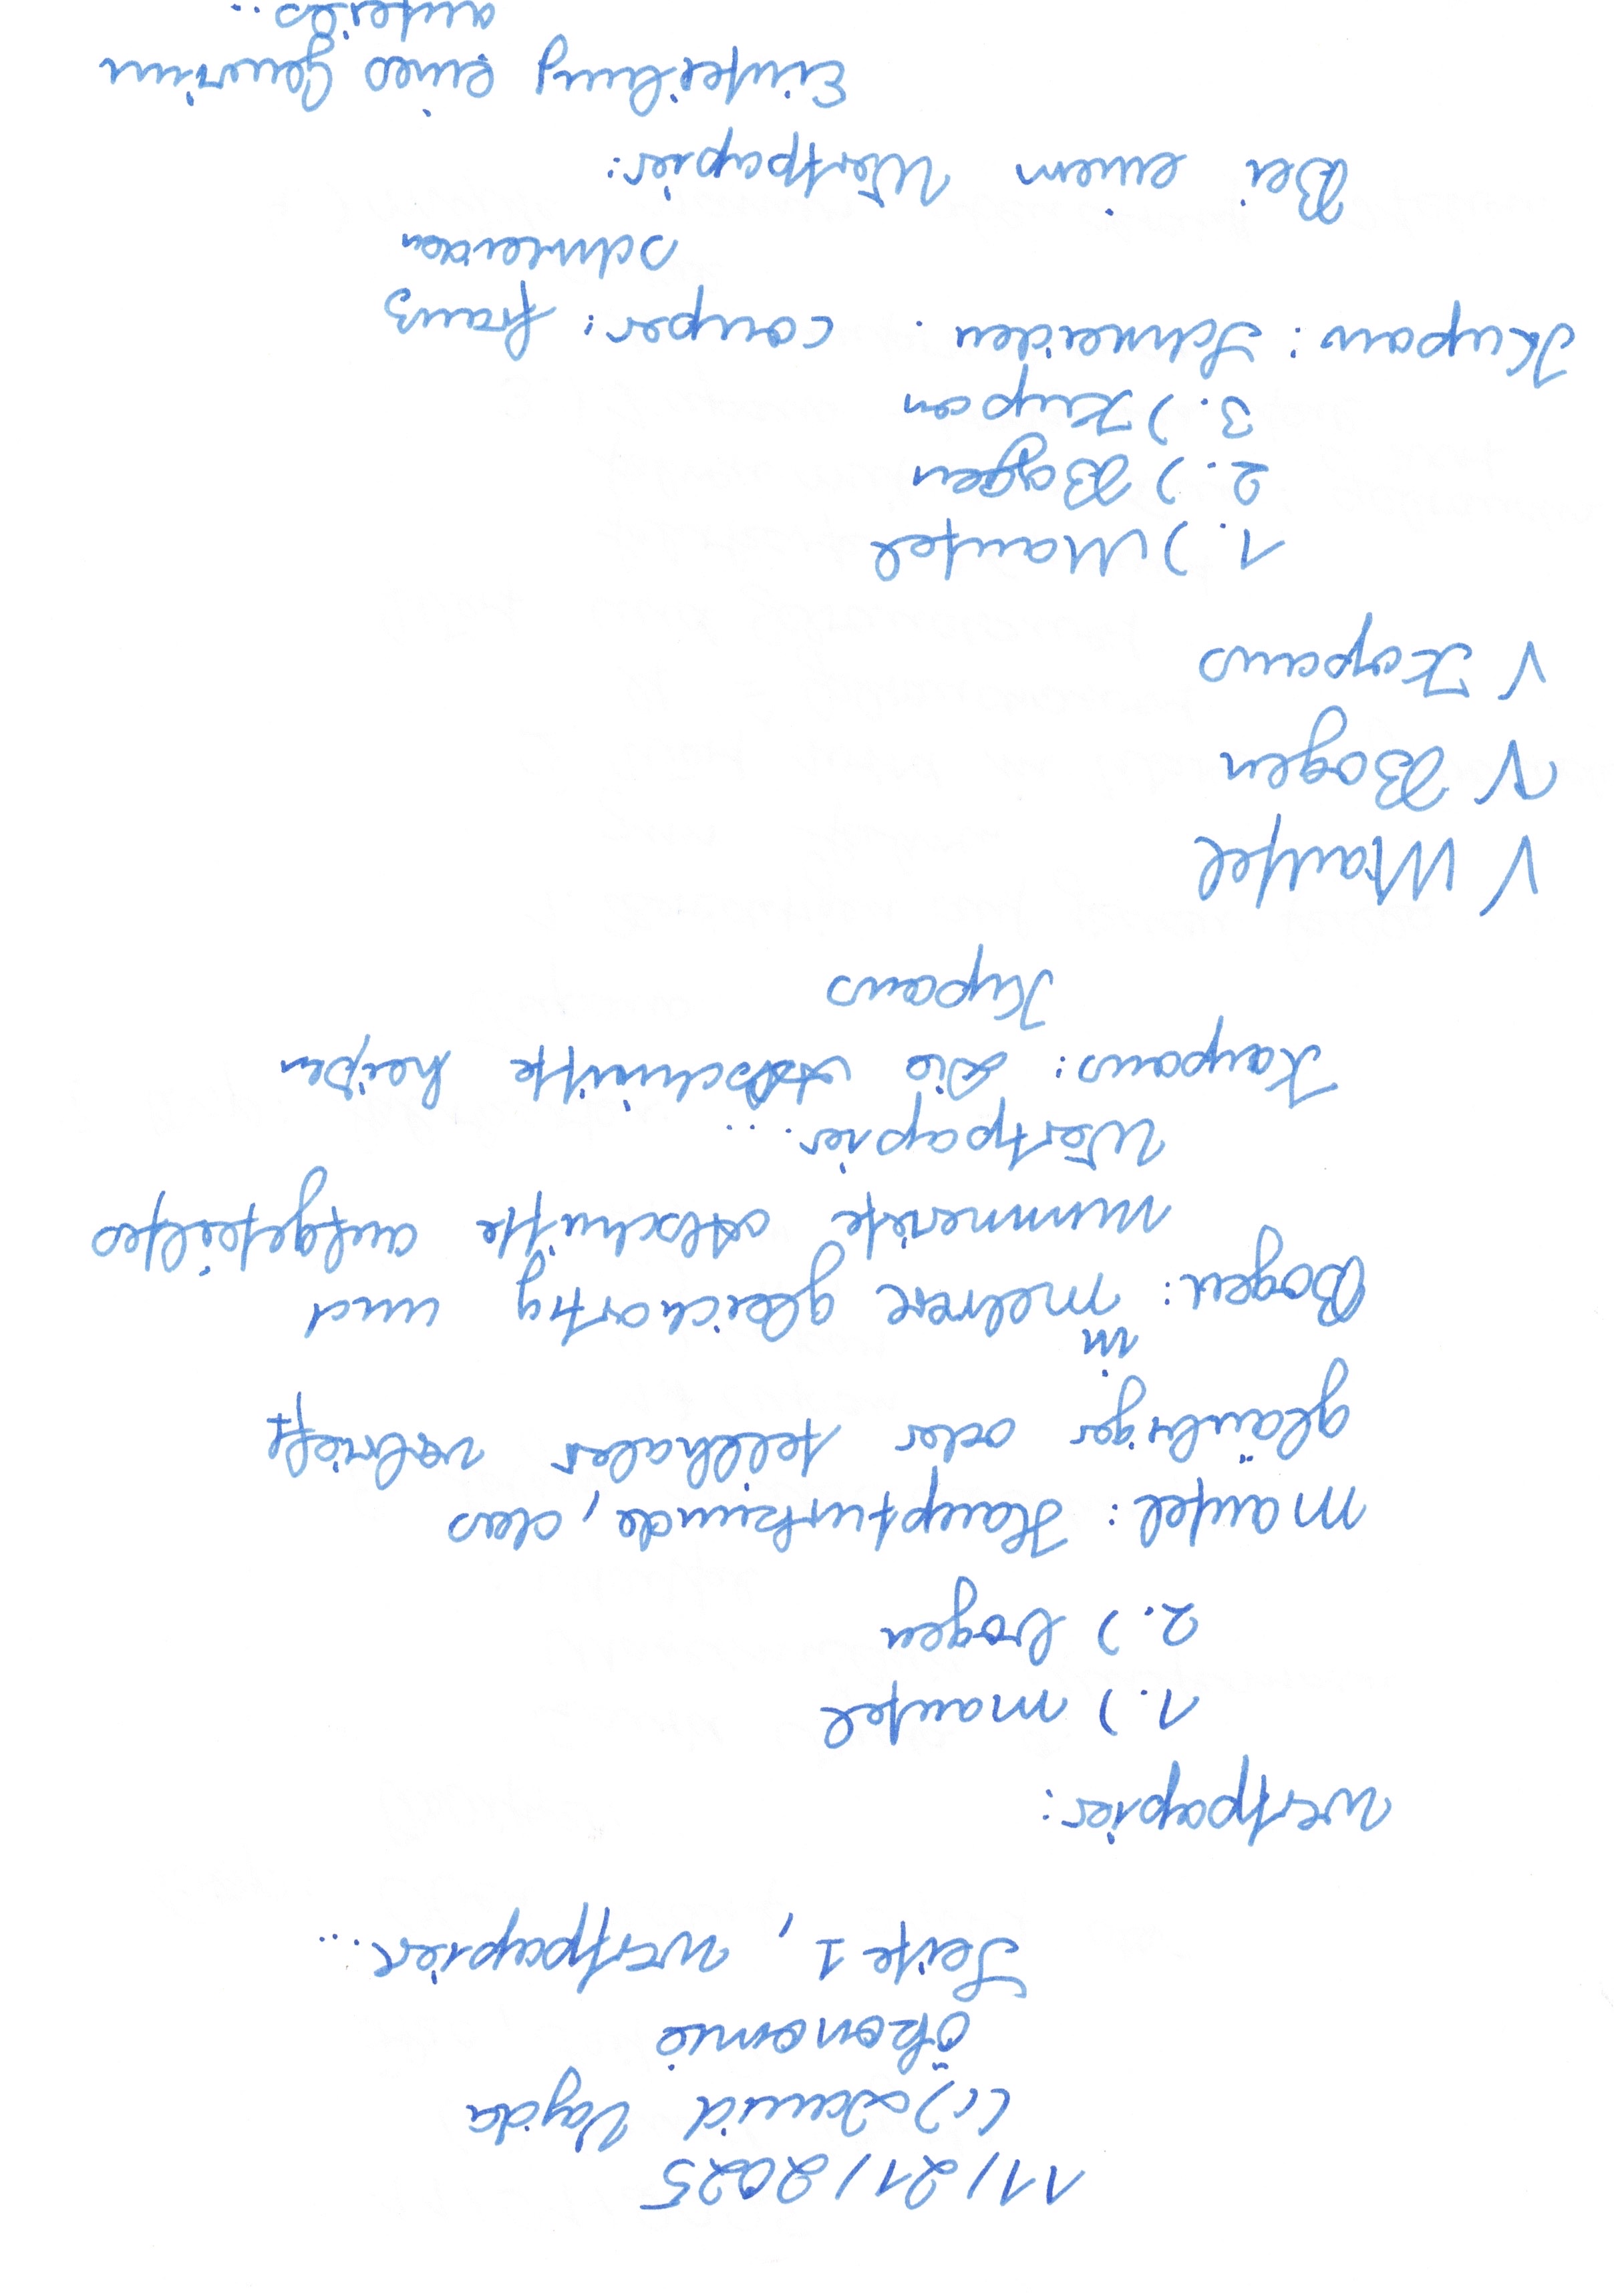 11/21/2025
(c) David Vajda
Ökonomie
Seite 1, Wertpapier...
Wertpapier:
1.) Mantel
2.) Bogen
Mantel: Haupturkunde, das
gläubiger oder teilhaber verbrieft
in
Bogen: mehrere gleichartig und
nummerierte Abschnitte aufgeteiltes
Wertpapier...
Koupons: Die Abschnitte heißen
Kupons
√ Mantel
√ Bogen
√ Kopons
1.) Mantel
2.) Bogen
3.) Kupon
Kupon: Schneiden. couper: franz
schneiden
Bei einem Wertpapier:
Einteilung eines